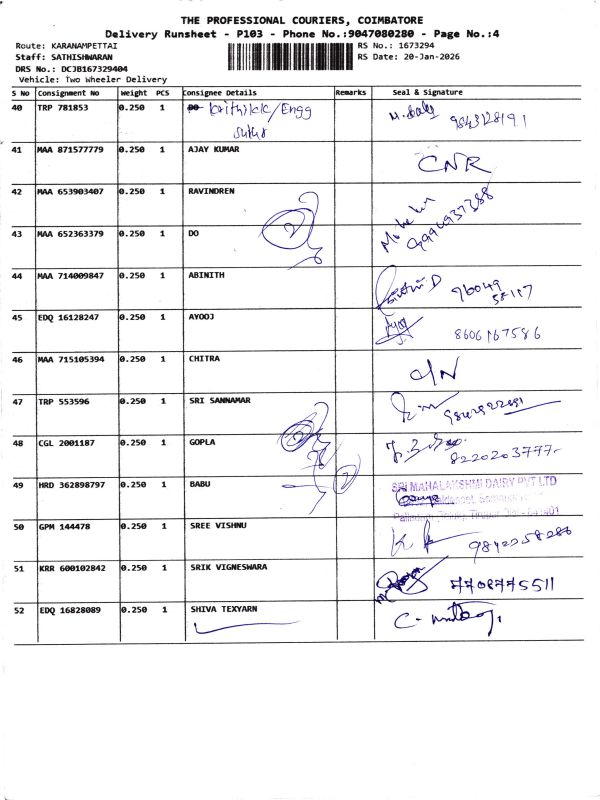 THE PROFESSIONAL COURIERS, COIMBATORE
Delivery Runsheet - P103 - Phone No.:9047080280 - Page No.:4
Route: KARANAMPETTAI RS No.: 1673294
Staff: SATHISHWARAN RS Date: 20-Jan-2026
DRS No.: DCJB167329404
Vehicle: Two Wheeler Delivery
S No Consignment No Weight PCS Consignee Details Remarks Seal & Signature
40 TRP 781853 0.250 1 /Engg 9843128191
41 MAA 871577779 0.250 1 AJAY KUMAR CNR
42 MAA 653903407 0.250 1 RAVINDREN
43 MAA 652363379 0.250 1 DO 2
44 MAA 714009847 0.250 1 ABINITH D 96049
45 EDQ 16128247 0.250 1 AYOOJ 8606767586
46 MAA 715105394 0.250 1 CHITRA
47 TRP 553596 0.250 1 SRI SANNAMAR
48 CGL 2001187 0.250 1 GOPLA 8220203777-
49 HRD 362898797 0.250 1 BABU 2 SRI MAHALAKSHMI DAIRY PVT LTD
50 GPM 144478 0.250 1 SREE VISHNU 9842258286
51 KRR 600102842 0.250 1 SRIK VIGNESWARA 7708775511
52 EDQ 16828089 0.250 1 SHIVA TEXYARN